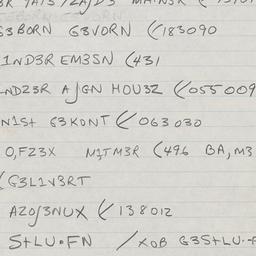 G3BORN G3VORN (/183090
1ND3R EM3SN (431
NDZ3R A∫GN HOU3Z (/055009
N1St G3KONT (/063030
O,FZ3X M1TM3R (496 BA,M3
(G3L1V3RT
AZO∫3NUX (/138012
StLU•FN /XOB G3StLU•